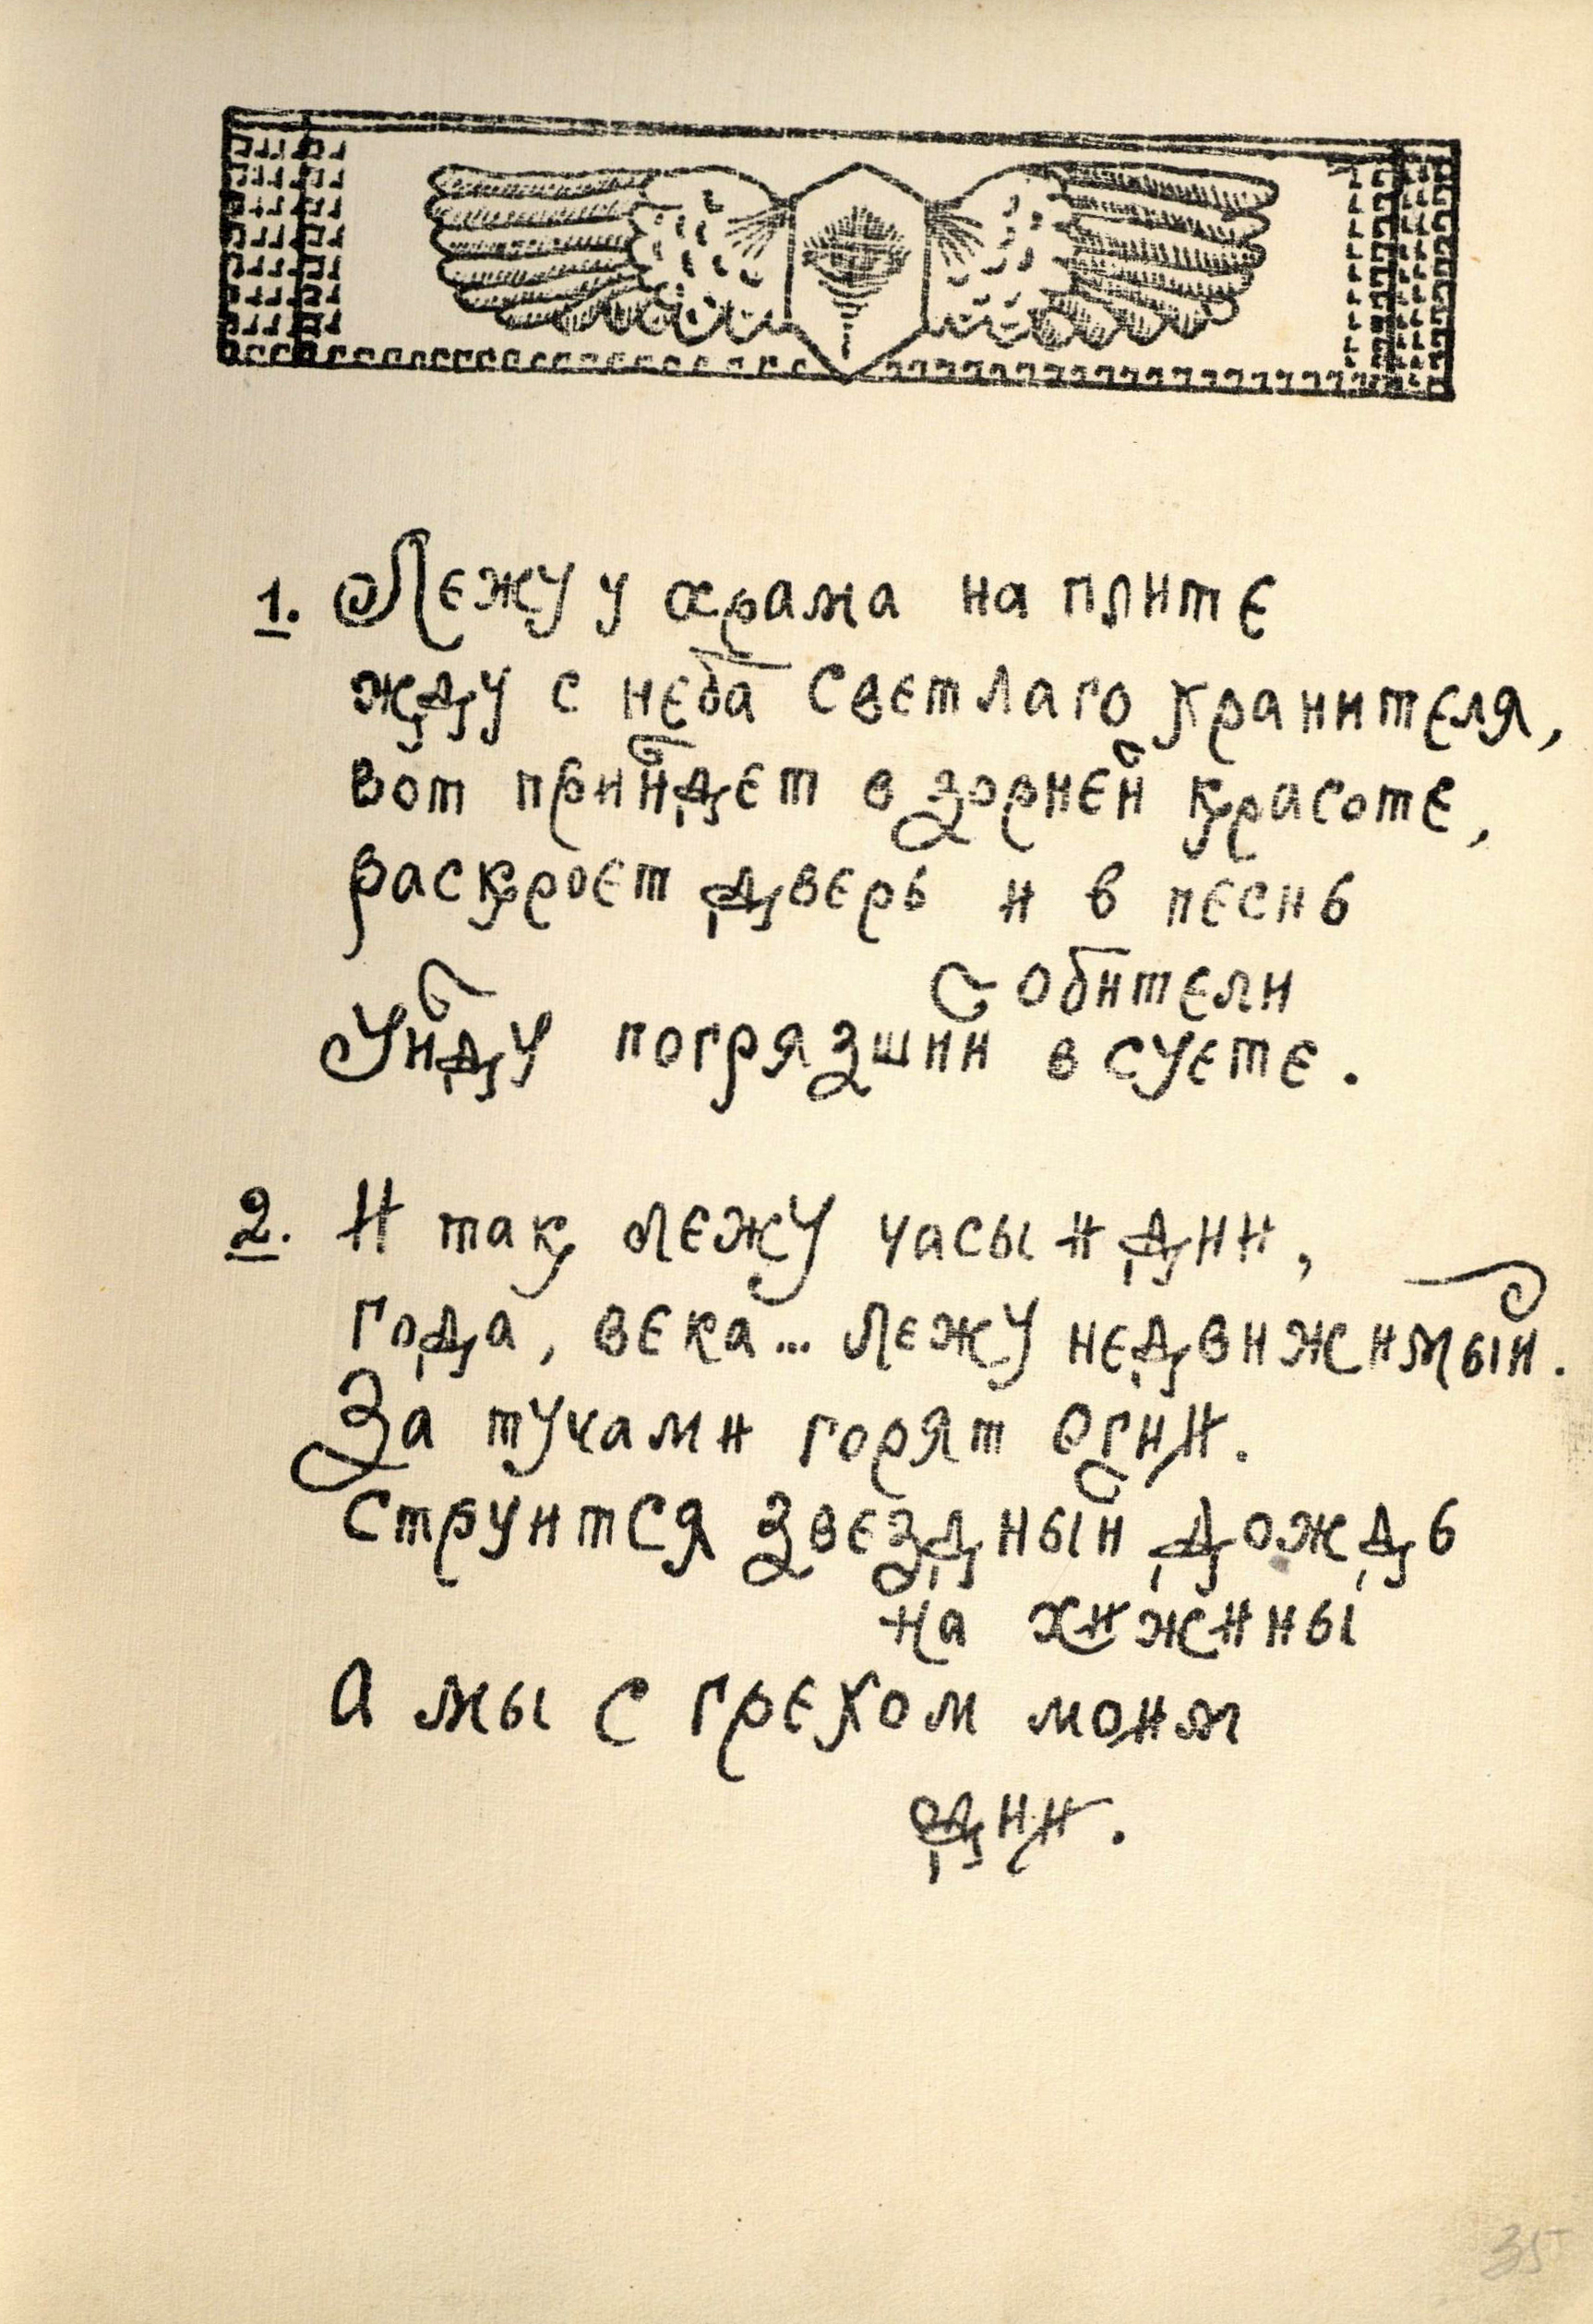 1. Лежу у храма на плите
жду с неба светлаго хранителя,
вот прийдет в зорней красоте,
раскроет дверь и в песнь
с обители
Уйду погрязший в суете.
2. И так лежу часы и дни,
года, века... лежу недвижимый.
За тучами горят огни.
Струится звездный дождь
на хижины
А мы с грехом моим
одни.
35